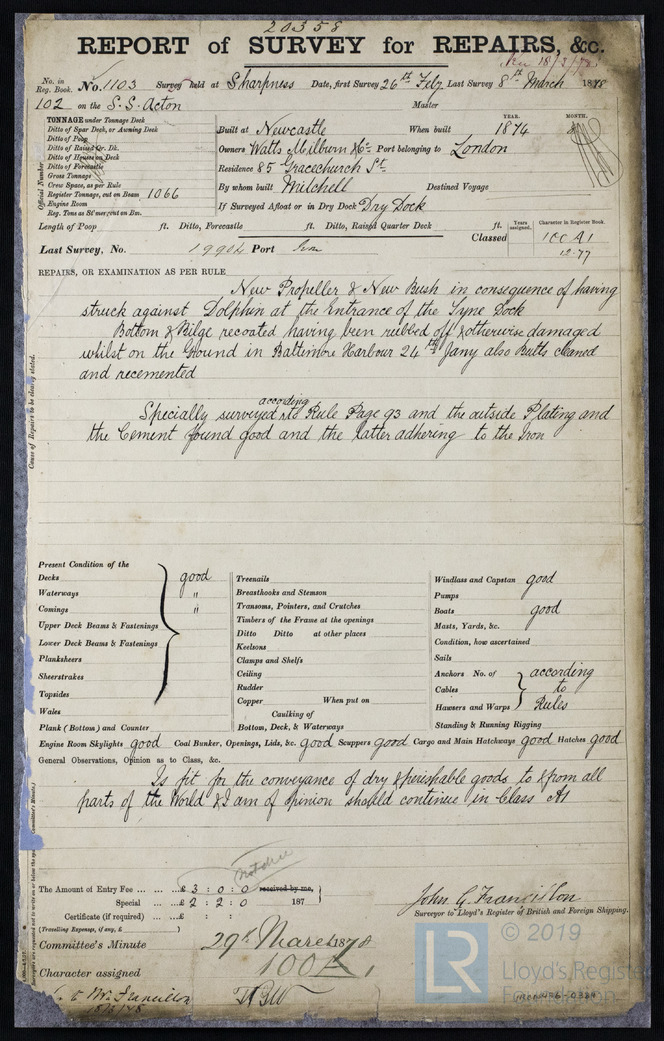 20358
REPORT of SURVEY for REPAIRS, &c.
Rec 18/3/78
No. in Reg. Book. No. 1103 Survey held at Sharpness Date, first Survey 26th Feby Last Survey 8th March 1878
102 on the S.S. Acton Master
TONNAGE under Tonnage Deck
Ditto of Spar Deck, or Awning Deck
Ditto of Poop
Ditto of Raised Qr. Dk.
Ditto of House on Deck
Ditto of Forecastle
Gross Tonnage
Crew Space, as per Rule
Register Tonnage, cut on Beam 1066
Engine Room
Reg. Tons as Steamer, cut on Bm.
Official Number
YEAR. MONTH.
Built at Newcastle When built 1874
Owners Watts Milburn & Co Port belonging to London
Residence 85 Gracechurch St.
By whom built Mitchell Destined Voyage
If Surveyed Afloat or in Dry Dock Dry Dock
Length of Poop ft. Ditto, Forecastle ft. Ditto, Raised Quarter Deck ft.
Classed Years assigned. Character in Register Book.
100 A1
12.77
Last Survey, No. 19904 Port Lon
REPAIRS, OR EXAMINATION AS PER RULE
New Propeller & New Bush in consequence of having
struck against Dolphin at the Entrance of the Tyne Dock
Bottom & Bilge recoated having been rubbed off & otherwise damaged
whilst on the Ground in Baltimore Harbour 24th Jany also Butts cleaned
and recemented
Specially surveyed according to Rule Page 93 and the outside Plating and
the Cement found good and the latter adhering to the Iron
Cause of Repairs to be clearly stated.
Present Condition of the
Decks good
Waterways "
Comings "
Upper Deck Beams & Fastenings
Lower Deck Beams & Fastenings
Planksheers
Sheerstrakes
Topsides
Wales
Plank (Bottom) and Counter
Treenails
Breasthooks and Stemson
Transoms, Pointers, and Crutches
Timbers of the Frame at the openings
Ditto Ditto at other places
Keelsons
Clamps and Shelfs
Ceiling
Rudder
Copper When put on
Caulking of
Bottom, Deck, & Waterways
Windlass and Capstan good
Pumps
Boats good
Masts, Yards, &c.
Condition, how ascertained
Sails
Anchors No. of according
Cables to
Hawsers and Warps Rules
Standing & Running Rigging
Engine Room Skylights good Coal Bunker, Openings, Lids, &c. good Scuppers good Cargo and Main Hatchways good Hatches good
General Observations, Opinion as to Class, &c.
Is fit for the conveyance of dry & perishable goods to & from all
parts of the World & I am of opinion should continue in Class A1
The Amount of Entry Fee ... ... £ 3 : 0 : 0 received by me,
Special ... ... £ 2 : 2 : 0 187
Certificate (if required) ... £ : :
(Travelling Expenses, if any, £
John G. Francillon
Surveyor to Lloyd's Register of British and Foreign Shipping.
Committee's Minute 29th March 1878
Character assigned 100 A 1
Mr. Francillon
© 2019
LR
Lloyd's Register
Foundation